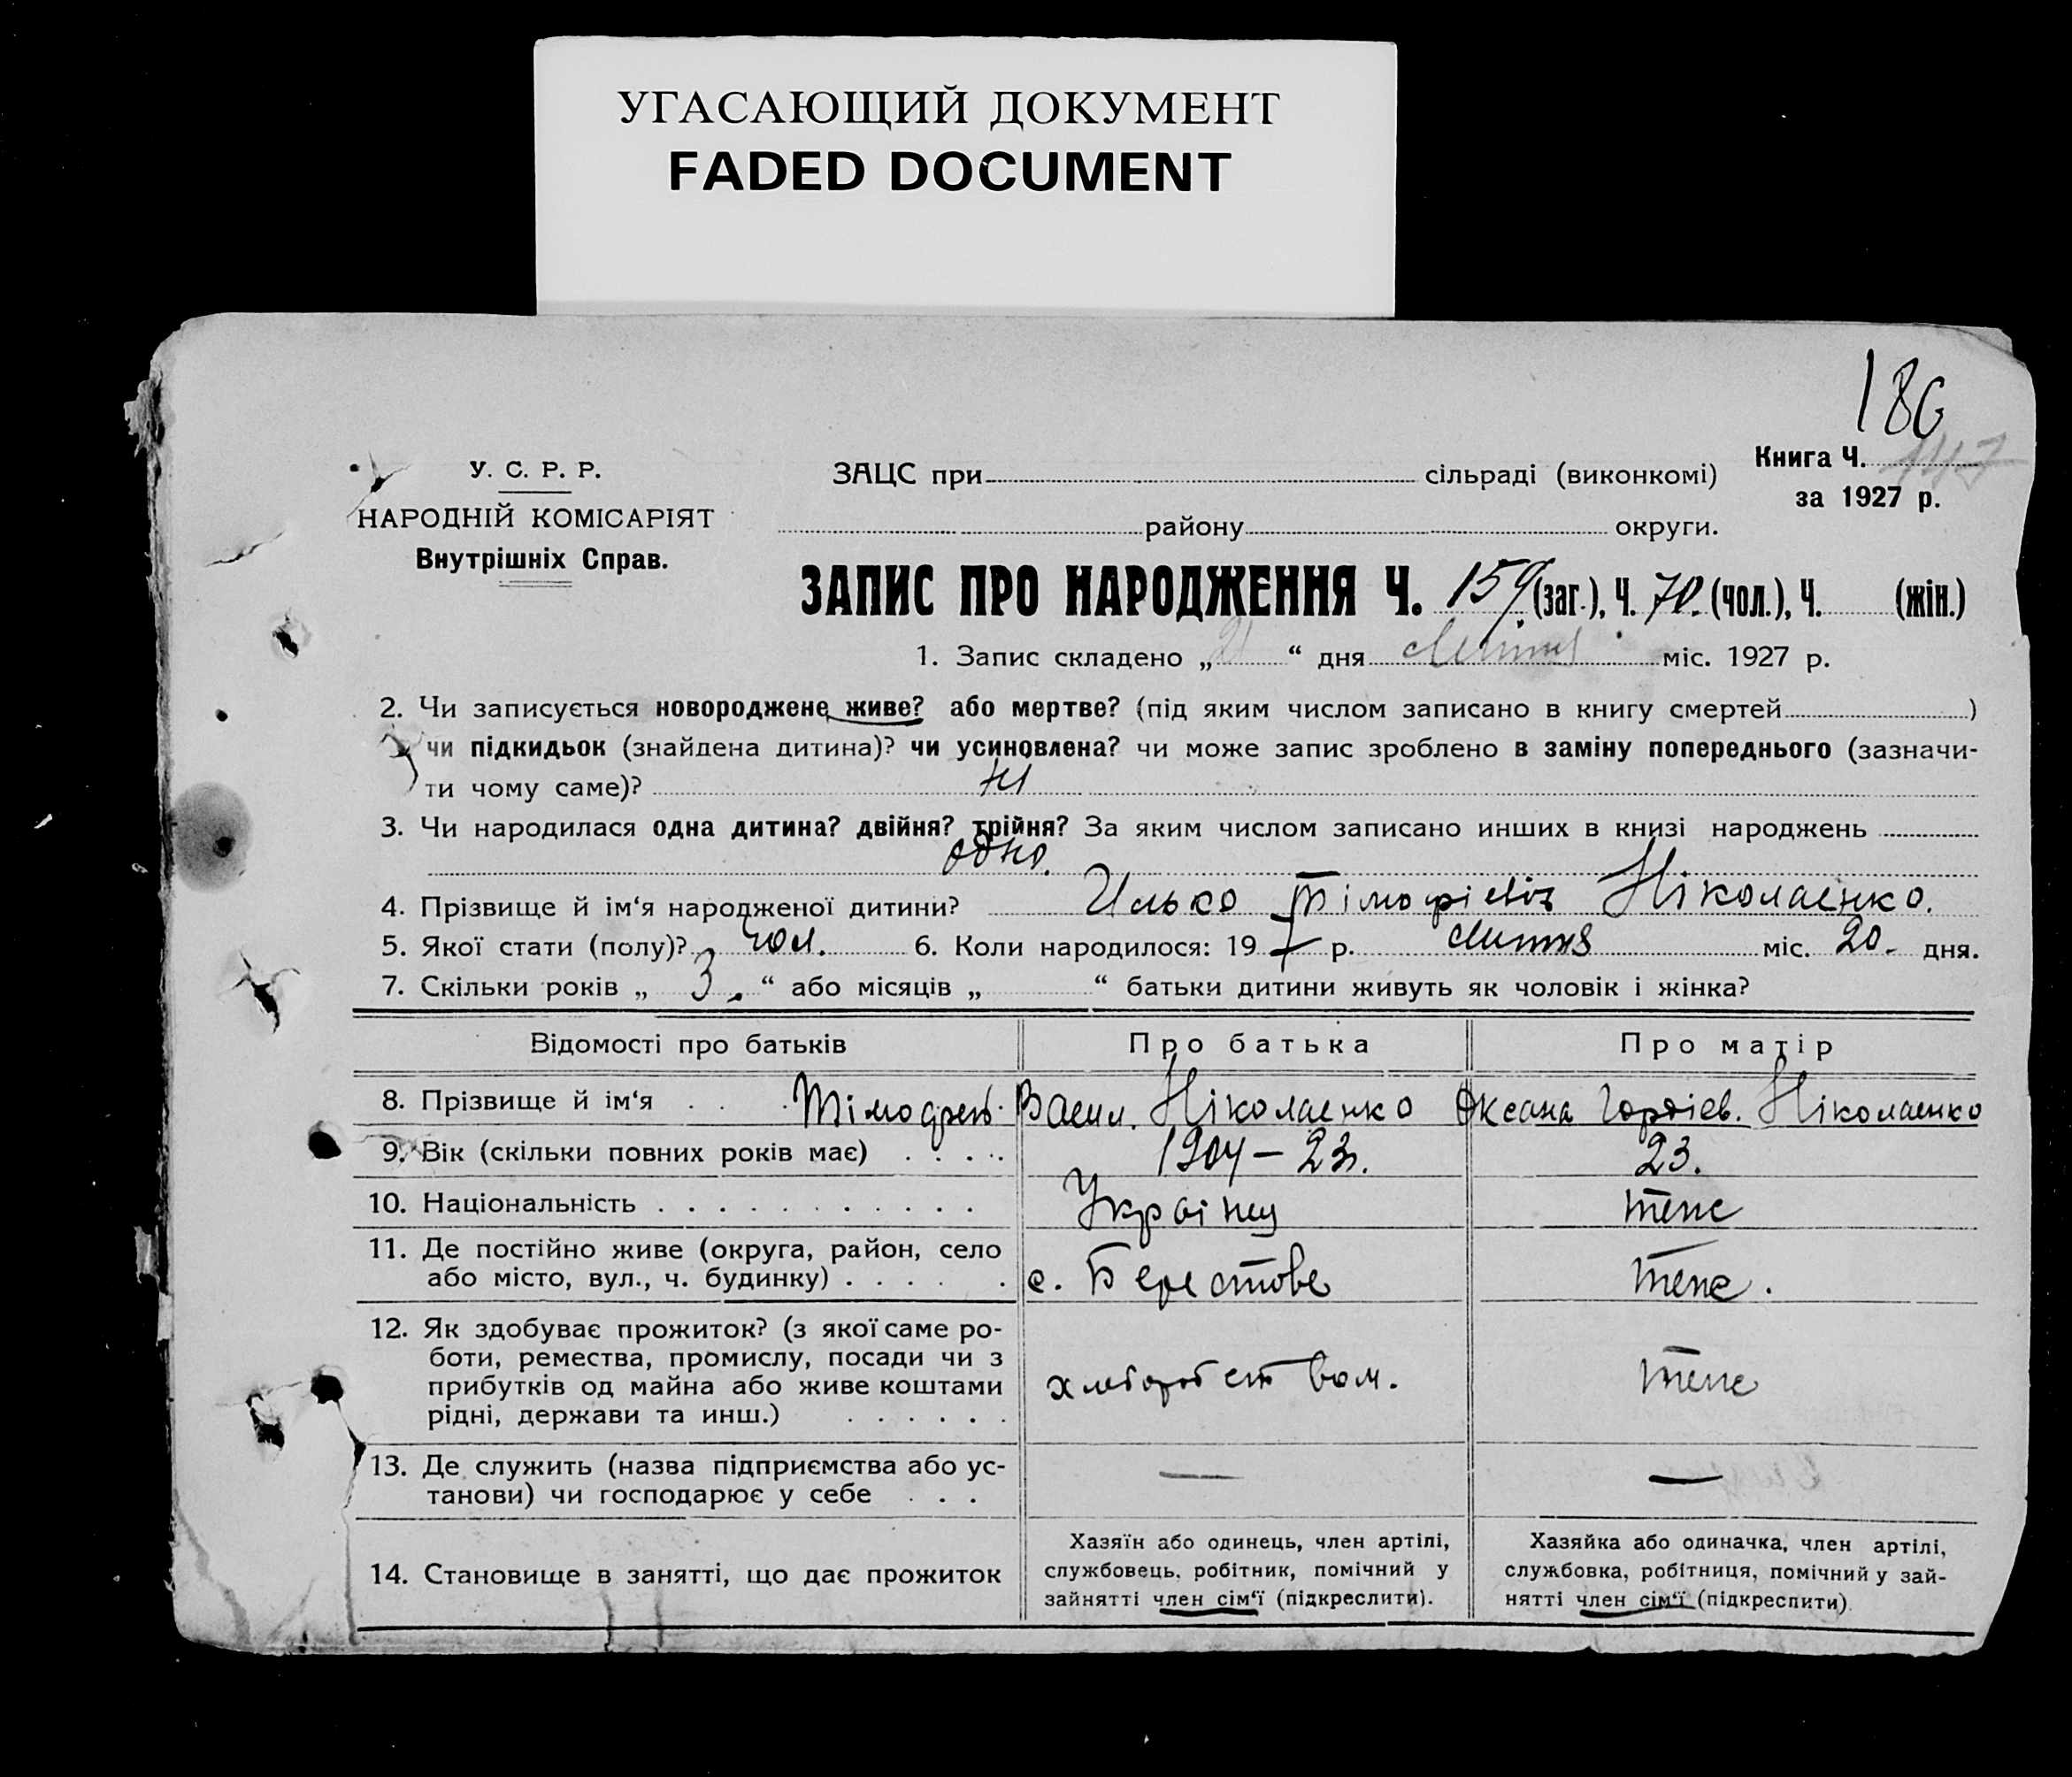 УГАСАЮЩИЙ ДОКУМЕНТ
FADED DOCUMENT
186
У. С. Р. Р.
НАРОДНІЙ КОМІСАРІЯТ
Внутрішніх Справ.
ЗАЦС при сільраді (виконкомі)
Книга Ч. 147
за 1927 р.
району округи.
ЗАПИС ПРО НАРОДЖЕННЯ Ч. 159 (заг.), Ч. 70. (чол.), Ч. (жін.)
1. Запис складено „ 21 “ дня Липня міс. 1927 р.
2. Чи записується новороджене живе? або мертве? (під яким числом записано в книгу смертей )
чи підкидьок (знайдена дитина)? чи усиновлена? чи може запис зроблено в заміну попереднього (зазначи-
ти чому саме)? ні
3. Чи народилася одна дитина? двійня? трійня? За яким числом записано инших в книзі народжень
одно.
4. Прізвище й ім‘я народженої дитини? Илько Тімофієвіч Ніколаєнко.
5. Якої стати (полу)? чол. 6. Коли народилося: 19 7 р. Липня міс. 20. дня.
7. Скільки років „ 3. “ або місяців „ “ батьки дитини живуть як чоловік і жінка?
Відомості про батьків Про батька Про матір
8. Прізвище й ім‘я Тімофей Васил. Ніколаєнко Оксана Гордієв. Ніколаєнко
9. Вік (скільки повних років має) 1904 – 23. 23.
10. Національність Українці теже
11. Де постійно живе (округа, район, село
або місто, вул., ч. будинку) с. Берестове теже.
12. Як здобуває прожиток? (з якої саме ро-
боти, ремества, промислу, посади чи з
прибутків од майна або живе коштами
рідні, держави та инш.) хліборобством. теже
13. Де служить (назва підприємства або ус-
танови) чи господарює у себе — —
14. Становище в занятті, що дає прожиток
Хазяїн або одинець, член артілі,
службовець, робітник, помічний у
зайнятті член сім‘ї (підкреслити).
Хазяйка або одиначка, член артілі,
службовка, робітниця, помічний у зай-
нятті член сім‘ї (підкреслити)